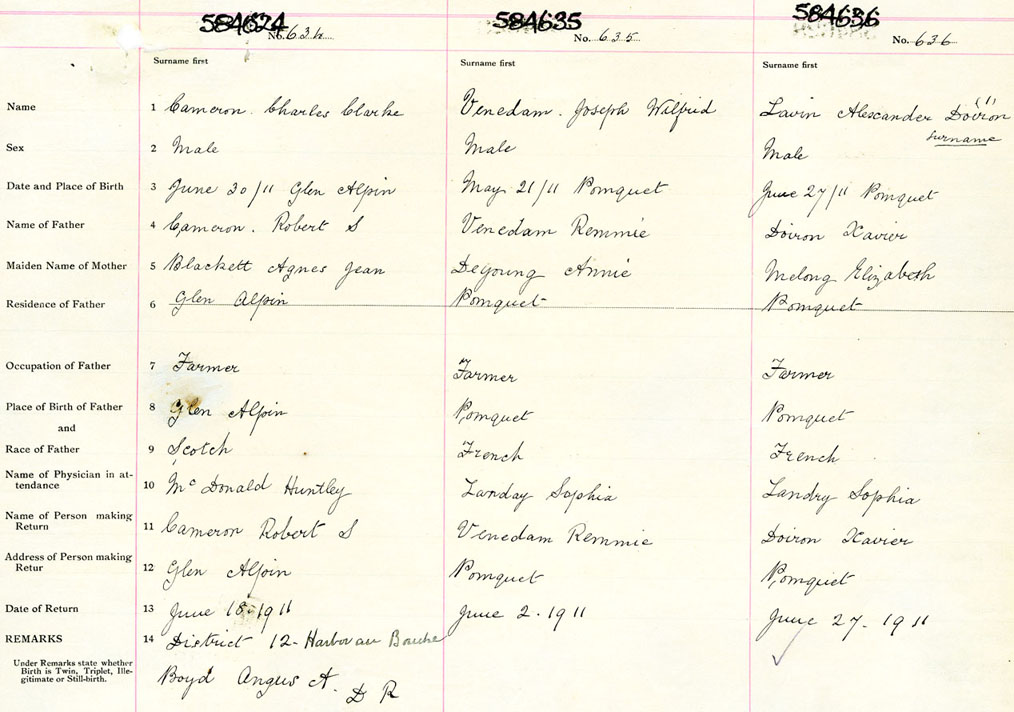 584634 584635 584636
No. 634 No. 635 No. 636
Surname first Surname first Surname first
Name 1 Cameron. Charles Clarke Venedam. Joseph Wilfrid Lavin Alexander Doiron (1)
surname
Sex 2 Male Male Male
Date and Place of Birth 3 June 30/11 Glen Alpin May 21/11 Pomquet June 27/11 Pomquet
Name of Father 4 Cameron. Robert S Venedam Remmie Doiron Xavier
Maiden Name of Mother 5 Blackett Agnes Jean DeYoung Annie Melong Elizabeth
Residence of Father 6 Glen Alpin Pomquet Pomquet
Occupation of Father 7 Farmer Farmer Farmer
Place of Birth of Father 8 Glen Alpin Pomquet Pomquet
and
Race of Father 9 Scotch French French
Name of Physician in at-
tendance 10 Mc Donald Huntley Landry Sophia Landry Sophia
Name of Person making
Return 11 Cameron Robert S Venedam Remmie Doiron Xavier
Address of Person making
Retur 12 Glen Alpin Pomquet Pomquet
Date of Return 13 June 18-1911 June 2-1911 June 27-1911
REMARKS 14 District 12- Harbor au Bouche
Under Remarks state whether
Birth is Twin, Triplet, Ille-
gitimate or Still-birth.
Boyd Angus A. D R